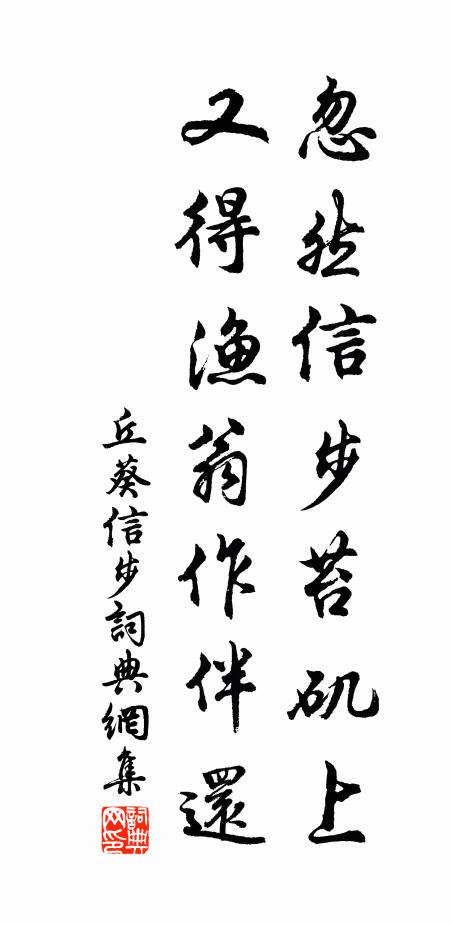 忽然信步苔矶上
又得漁翁作伴還
丘葵信步詞典網集
詞典网印